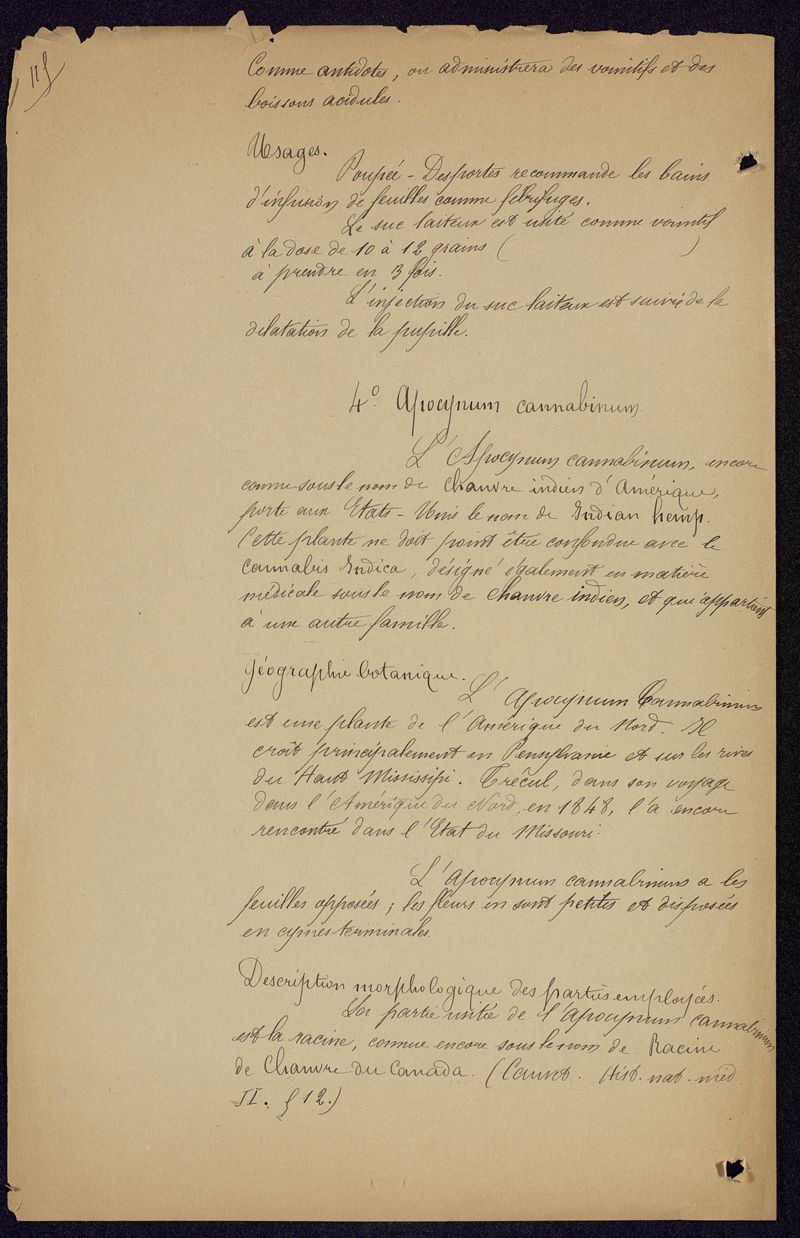 115
Comme antidotes, on administrera des vomitifs et des
boissons acidules.
Usages.
Poupée-Desportes recommande les bains
d'infusion de feuilles comme fébrifuges.
Le suc laiteux est usité comme vomitif
à la dose de 10 à 12 grains ( )
à prendre en 3 fois.
L'injection du suc laiteux est suivie de la
dilatation de la pupille.
4° Apocynum cannabinum.
L'Apocynum cannabinum, encore
connu sous le nom de Chanvre indien d'Amérique,
porte aux Etats-Unis le nom de Indian hemp.
Cette plante ne doit point être confondue avec le
Cannabis Indica, désigné également en matière
médicale sous le nom de Chanvre indien, et qui appartient
à une autre famille.
Géographie botanique.
L'Apocynum Cannabinum
est une plante de l'Amérique du Nord. Il
croît principalement en Pensylvanie et sur les rives
du Haut Mississipi. Trécul, dans son voyage
dans l'Amérique du Nord, en 1848, l'a encore
rencontré dans l'Etat du Missouri.
L'Apocynum cannabinum a les
feuilles opposées ; les fleurs en sont petites et disposées
en cymes terminales.
Description morphologique des parties employées.
La partie usitée de l'Apocynum cannabinum
est la racine, connue encore sous le nom de Racine
de Chanvre du Canada. (Cauvet. Hist. nat. méd.
II. § 12.)